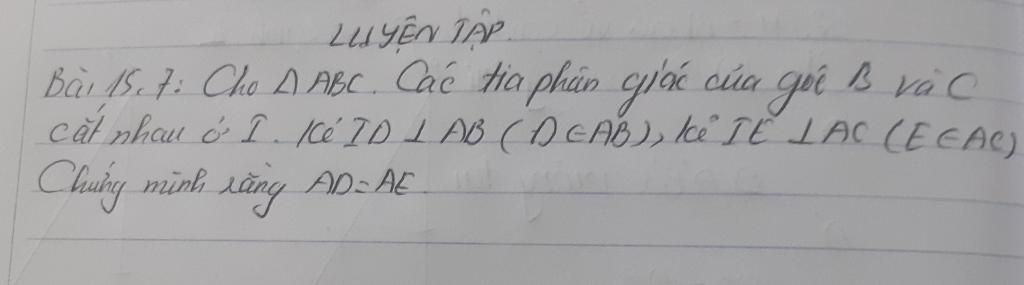 LUYỆN TẬP.
Bài 15.7: Cho Δ ABC. Các tia phân giác của góc B và C
cắt nhau ở I. Kẻ ID ⊥ AB (D ∈ AB), kẻ IE ⊥ AC (E ∈ AC)
Chứng minh rằng AD = AE.